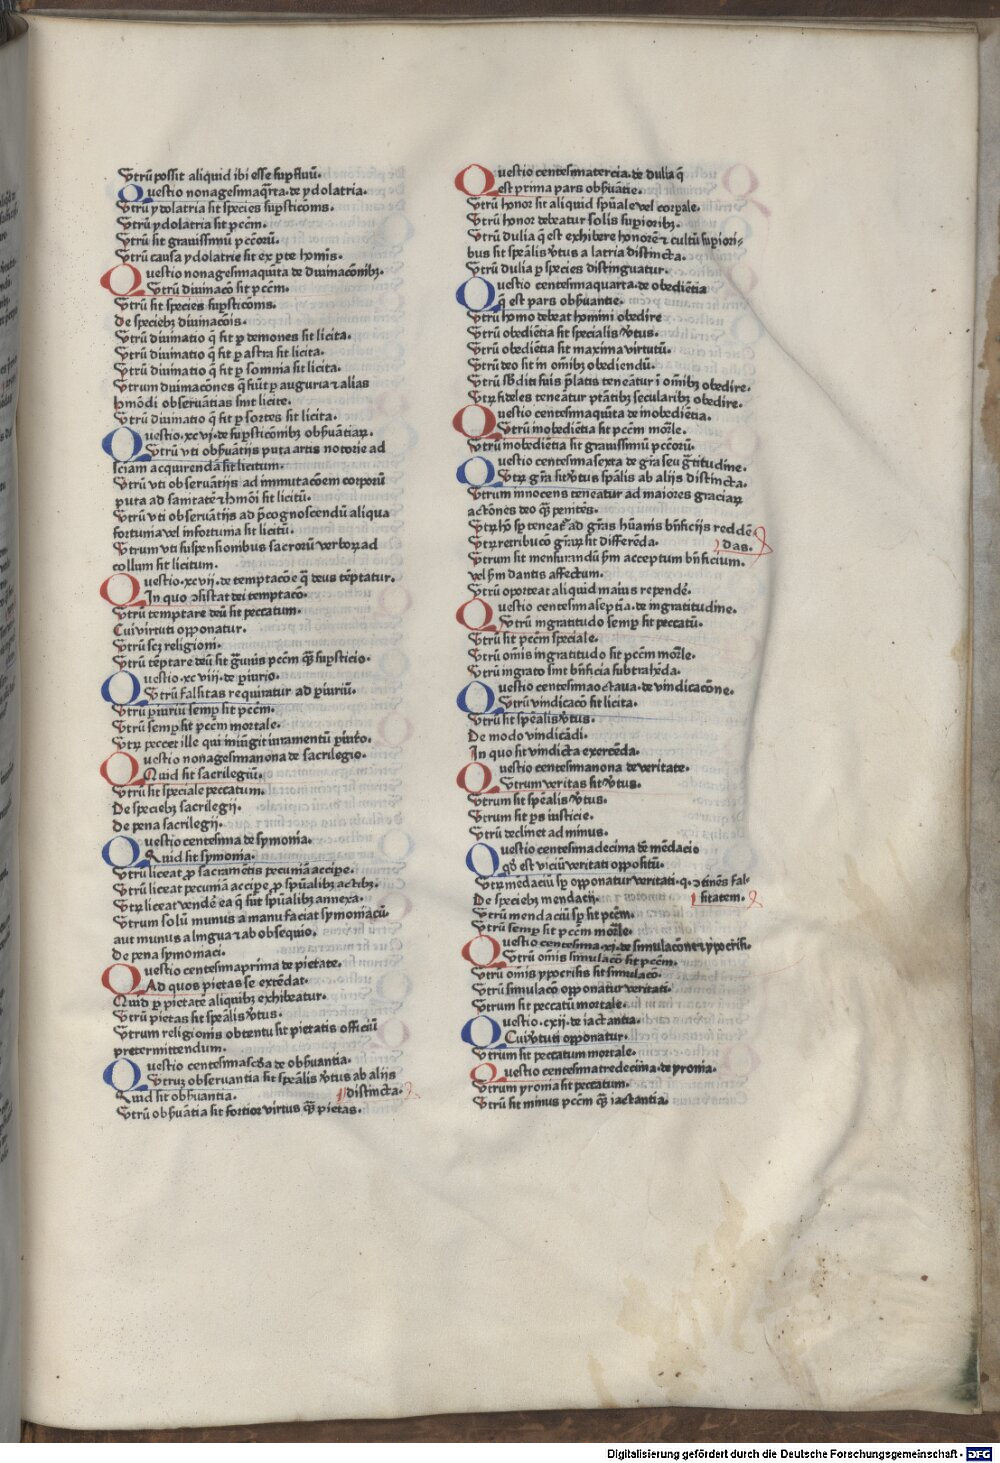 Utrū possit aliquid ibi esse suꝑfluū.
Questio nonagesimaq̄rta. de ydolatria.
Utrū ydolatria sit species suꝑsticōnis.
Utrū ydolatria sit pccm̄.
Utrū sit grauissimū pccōrū.
Utrū causa ydolatrie sit ex ꝑte hoīnis.
Questio nonagesimaquīta de diuinacōnibꝫ.
Utrū diuinacō sit pccm̄.
Utrū sit species suꝑsticōnis.
De speciebꝫ diuinacōis.
Utrū diuinatio q̄ fit ꝑ demones sit licita.
Utrū diuinatio q̄ fit ꝑ astra sit licita.
Utrū diuinatio q̄ fit ꝑ somnia sit licita.
Utrum diuinacōnes q̄ fiūt ꝑ auguria ⁊ alias
hmōdi obseruātias sint licite.
Utrū diuinatio q̄ fit ꝑ sortes sit licita.
Questio. xcvj. de suꝑsticōnibꝫ obẜuātiaꝝ.
Utrū vti obẜuātijs puta artis notorie ad
sciam acquirendā sit licitum.
Utrū vti obseruātijs ad immutacōem corporū
puta ad sanitatē ⁊ hmōi sit licitū.
Utrū vti obseruātijs ad p̄cognoscendū aliqua
fortunia vel infortunia sit licitū.
Utrum vti suspensionibus sacrorū verboꝝ ad
collum sit licitum.
Questio. xcvij. de temptacōe q̄ deus tēptatur.
In quo ↄsistat dei temptacō.
Utrū temptare deū sit peccatum.
Cui virtuti opponatur.
Utrū scꝫ religioni.
Utrū tēptare deū sit ḡuius pccm̄ qȝ suꝑsticio.
Questio. xcviij. de ꝑiurio.
Utrū falsitas requiratur ad ꝑiuriū.
Utrū ꝑiuriū semꝑ sit pccm̄.
Utrū semꝑ sit pccm̄ mortale.
Utꝝ peccet ille qui iniūgit iuramentū ꝑiuro.
Questio nonagesimanona de sacrilegio.
Quid sit sacrilegiū.
Utrū sit speciale peccatum.
De speciebꝫ sacrilegij.
De pena sacrilegij.
Questio centesima de symonia.
Quid sit symonia.
Utrū liceat ꝓ sacramētis pecuniā accipe.
Utrū liceat pecuniā accipe ꝓ spūalibꝫ actibꝫ.
Utꝝ liceat vendē ea q̄ sūt spūalibꝫ annexa.
Utrum solū munus a manu faciat symoniacū
aut munus a lingua ⁊ ab obsequio.
De pena symoniaci.
Questio centesimaprima de pietate.
Ad quos pietas se extēdat.
Quid ꝑ pietatē aliquibꝫ exhibeatur.
Utrū pietas sit spēalis v̄tus.
Utrum religionis obtentu sit pietatis officiū
pretermittendum.
Questio centesimascḋa de obẜuantia.
Utruꝫ obseruantia sit spēalis v̄tus ab alijs
Quid sit obẜuantia. distincta.
Utrū obẜuātia sit fortior virtus qȝ pietas.
Questio centesimatercia. de dulia q̄
est prima pars obẜuātie.
Utrū honor sit aliquid spūale vel corꝑale.
Utrū honor debeatur solis suꝑioribꝫ.
Utrū dulia q̄ est exhibere honorē ⁊ cultū suꝑiori-
bus sit spēalis v̄tus a latria distincta.
Utrū dulia ꝑ species distinguatur.
Questio centesimaquarta. de obediētia
q̄ est pars obẜuantie.
Utrū homo debeat homini obedire
Utrū obediētia sit specialis v̄tus.
Utrū obediētia sit maxima virtutū.
Utrū deo sit in oīnibꝫ obediendū.
Utrū sb̄diti suis p̄latis teneātur ī oīnibꝫ obedire.
Utꝝ fideles teneātur ptātibꝫ secularibꝫ obedire.
Questio centesimaquīta de inobediētia.
Utrū inobediētia sit pccm̄ morl̄e.
Utrū inobediētia sit grauissimū pccōrū.
Questio centesimasexta de gr̄a seu ḡtitudine.
Utꝝ gr̄a sit v̄tus spēalis ab alijs distincta.
Utrum innocens teneatur ad maiores graciaꝝ
actōnes deo qȝ penitēs.
Utꝝ hō sꝑ teneat̄ ad gr̄as hūanis bn̄ficijs reddē
Utꝝ retribucō gr̄aꝝ sit differēda. das.
Utrum sit mensurandū ẜm acceptum bn̄ficium.
vel ẜm dantis affectum.
Utrū oporteat aliquid maius rependē.
Questio centesimasepti̇̄a. de ingratitudine.
Utrū ingratitudo semꝑ sit peccatū.
Utrū sit pccm̄ speciale.
Utrū oīnis ingratitudo sit pccm̄ morl̄e.
Utrū ingrato sint bn̄ficia subtrahēda.
Questio centesimaoctaua. de vindicacōne.
Utrū vindicacō sit licita.
Utrū sit spēalis v̄tus.
De modo vindicādi.
In quo sit vindicta exercēda.
Questio centesimanona de veritate.
Utrum veritas sit v̄tus.
Utrum sit spēalis v̄tus.
Utrum sit ꝑs iusticie.
Utrū declinet ad minus.
Questio centesimadecima de mēdacio
qd̄ est viciū veritati oppositū.
Utꝝ mēdaciū sꝑ opponatur veritati. q. ↄtinēs fal-
De speciebꝫ mendacij. sitatem.
Utrū mendaciū sꝑ sit pccm̄.
Utrū semꝑ sit pccm̄ morl̄e.
Questio centesima. xi. de simulacōne ⁊ ypocrisi.
Utrū oīnis simulacō sit pccm̄.
Utrū oīnis ypocrisis sit simulacō.
Utrū simulacō opponatur veritati.
Utrum sit peccatū mortale.
Questio. cxij. de iactantia.
Cui v̄tuti opponatur.
Utrum sit peccatum mortale.
Questio centesimatredecima. de yronia.
Utrum yronia sit peccatum.
Utrū sit minus pccm̄ qȝ iactantia.
Digitalisierung gefördert durch die Deutsche Forschungsgemeinschaft - DFG